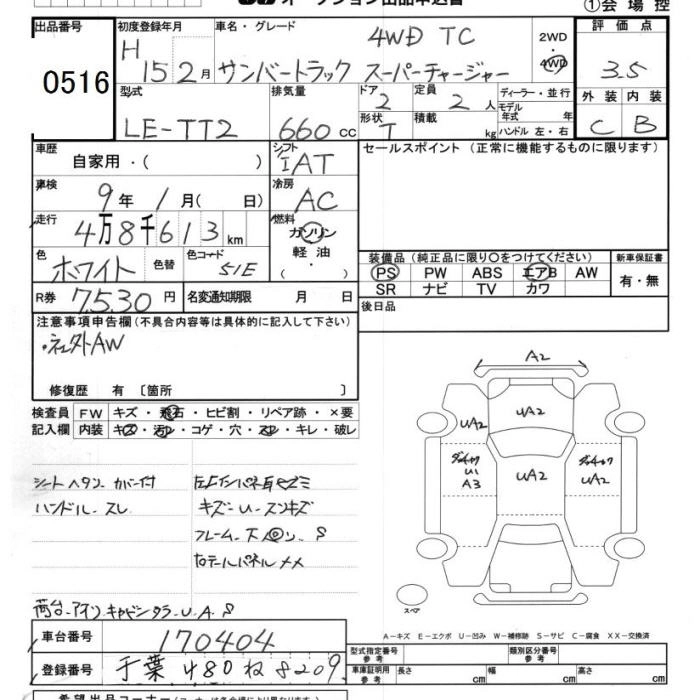 オークション出品申込書 ①会場控
出品番号 初度登録年月 車名・グレード 評価点
0516 H 15 2月 サンバートラック 4WD TC スーパーチャージャー 2WD・4WD 3.5
型式 排気量 ドア 定員 ディーラー・並行 外装 内装
LE-TT2 660cc 2 2人 モデル年式 年 C B
形状 T 積載 kg ハンドル 左・右
車歴 自家用・( ) シフト IAT セールスポイント (正常に機能するものに限ります)
車検 9年 1月( 日) 冷房 AC
走行 4万8千613km 燃料 ガソリン・軽油・( )
色 ホワイト 色替 色コード 51E
装備品 (純正品に限り○をつけてください) 新車保証書
PS PW ABS エアB AW 有・無
SR ナビ TV カワ
R券 7,530円 名変通知期限 月 日 後日品
注意事項申告欄 (不具合内容等は具体的に記入して下さい)
・社外AW
修復歴 有 〔箇所 〕
検査員 FW キズ・飛石・ヒビ割・リペア跡・×要
記入欄 内装 キズ・汚レ・コゲ・穴・スレ・キレ・破レ
シートヘタリ カバー付
ハンドル-スレ
キズ-U-スリキズ
A2
UA2 UA2
UA2
U1
A3
UA2
スペア
A-キズ E-エクボ U-凹み W-補修跡 S-サビ C-腐食 XX-交換済
車台番号 170404 型式指定番号 参考 類別区分番号 参考
登録番号 千葉 480 ね 8209 車庫証明用 参考 長さ cm 幅 cm 高さ cm
希望出品コーナー